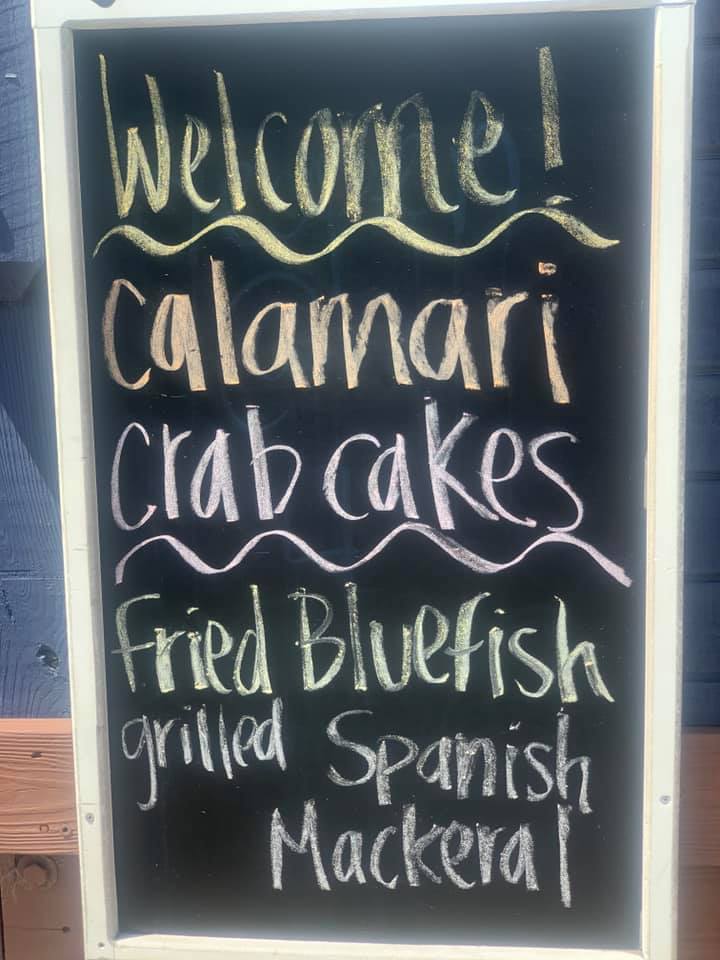 Welcome!
Calamari
Crab cakes
Fried Bluefish
grilled Spanish
Mackeral